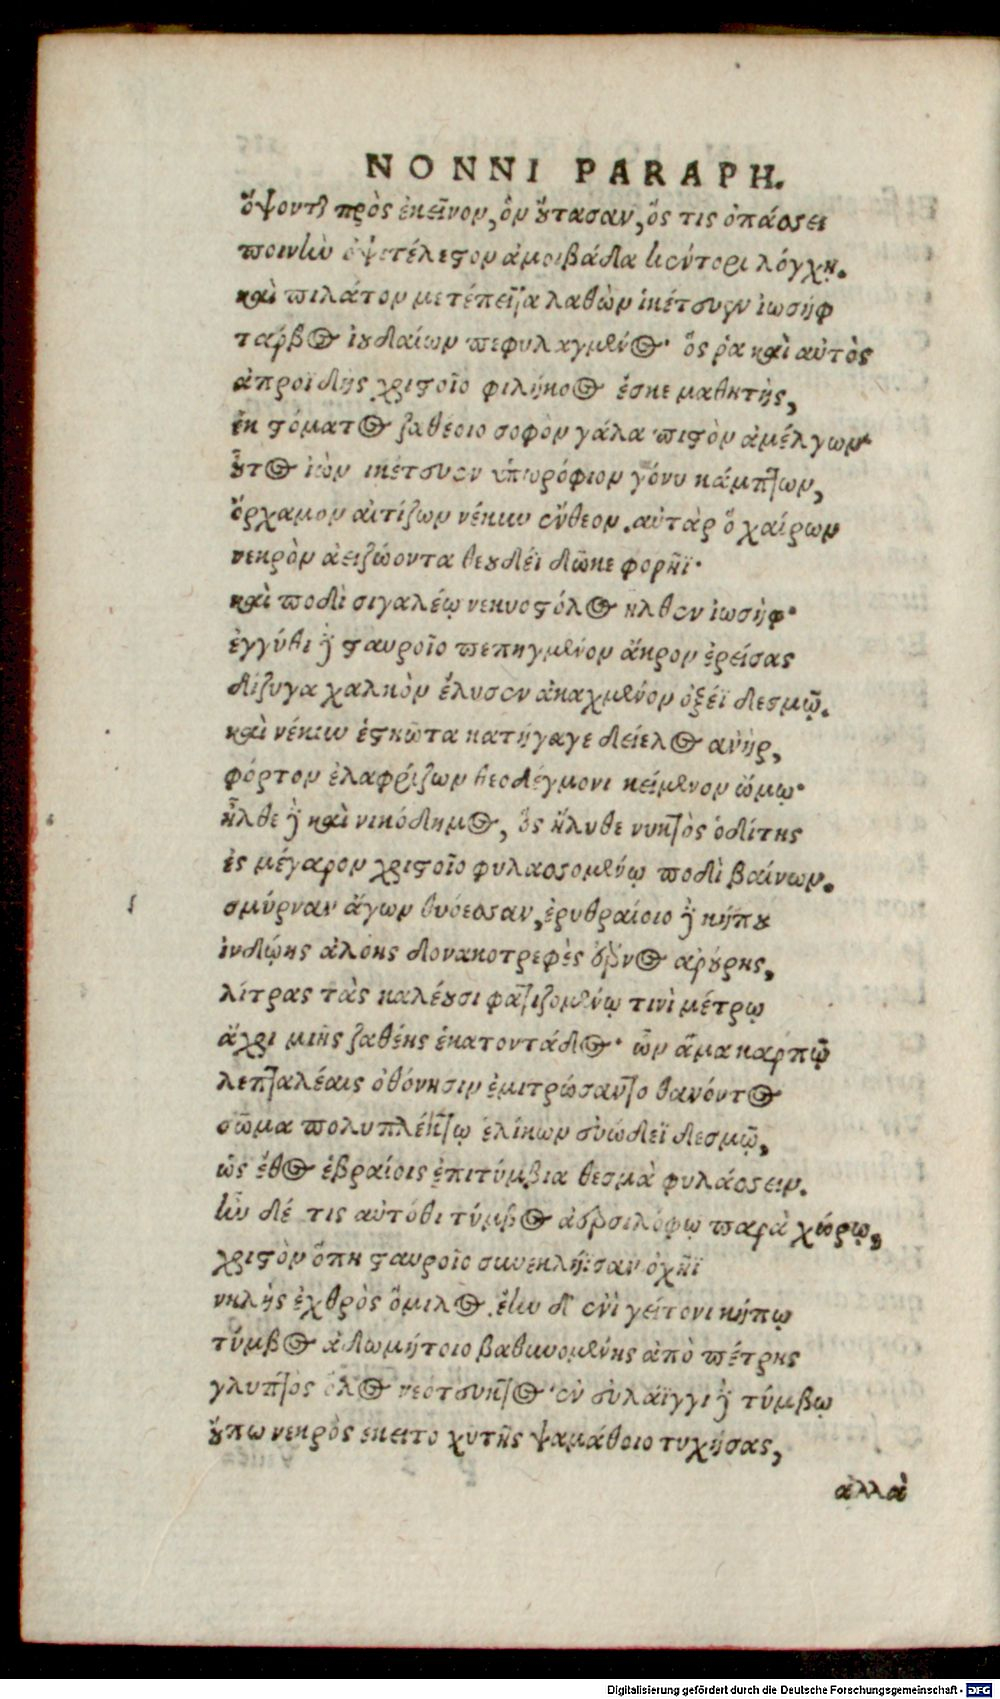 NONNI PARAPH.
ὄψονται πρὸς ἐκεῖνον, ὃν οὔτασαν, ὅς τις ὀπάσσει
ποινὴν ὀψιτέλεστον ἀμοιβάδα κέντορι λόγχῃ.
καὶ πιλάτον μετέπειτα λαθὼν ἱκέτευεν ἰωσήφ
τάρβος ἰουδαίων πεφυλαγμένος· ὅς ῥα καὶ αὐτὸς
ἀπροϊδὴς χριστοῖο φιλήκοος ἔσκε μαθητής,
ἐκ στόματος ζαθέοιο σοφὸν γάλα πιστὸν ἀμέλγων·
οὗτος ἰὼν ἱκέτευεν ὑπωρόφιον γόνυ κάμπτων,
ὄρχαμον αἰτίζων νέκυν ἔνθεον. αὐτὰρ ὃ χαίρων
νεκρὸν ἀειζώοντα θεουδέϊ δῶκε φορῆϊ·
καὶ ποδὶ σιγαλέῳ νεκυοστόλος ἦλθεν ἰωσὴφ·
ἐγγύθι δὲ σταυροῖο πεπηγμένον ἄκρον ἐρείσας
δίζυγα χαλκὸν ἔλυσεν ἀκαχμένον ὀξέϊ δεσμῷ.
καὶ νέκυν ἑστηῶτα κατήγαγε δείελος ἀνήρ,
φόρτον ἐλαφρίζων θεοδέγμονι κείμενον ὤμῳ·
ἦλθε δὲ καὶ νικόδημος, ὃς ἤλυθε νυκτὸς ὁδίτης
ἐς μέγαρον χριστοῖο φυλασσομένῳ ποδὶ βαίνων.
σμύρναν ἄγων θυόεσσαν, ἐρυθραίοιο δὲ κήπου
ἰνδῴης ἀλόης δονακοτρεφὲς ἔρνος ἀρούρης,
λίτρας τὰς καλέουσι φατιζομένῳ τινὶ μέτρῳ
ἄχρι μιῆς ζαθέης ἑκατοντάδος· ὧν ἅμα καρπῷ
λεπταλέαις ὀθόνῃσιν ἐμιτρώσαντο θανόντος
σῶμα πολυπλέκτῳ ἑλίκων εὐώδεϊ δεσμῷ,
ὡς ἔθος ἑβραίοις ἐπιτύμβια θεσμὰ φυλάσσειν.
ἦν δέ τις αὐτόθι τύμβος ἀερσιλόφῳ παρὰ χώρῳ,
χριστὸν ὅπη σταυροῖο συνεκλήϊσαν ὀχῆϊ
νηλὴς ἐχθρὸς ὅμιλος. ἔην δ' ἐνὶ γείτονι κήπῳ
τύμβος ἀδωμήτοιο βαθυνομένης ἀπὸ πέτρης
γλυπτὸς ὅλος νεότευκτος· ἐν εὐλάϊγγι δὲ τύμβῳ
οὔπω νεκρὸς ἔκειτο χυτῆς ψαμάθοιο τυχήσας,
ἀλλὰ
Digitalisierung gefördert durch die Deutsche Forschungsgemeinschaft - DFG